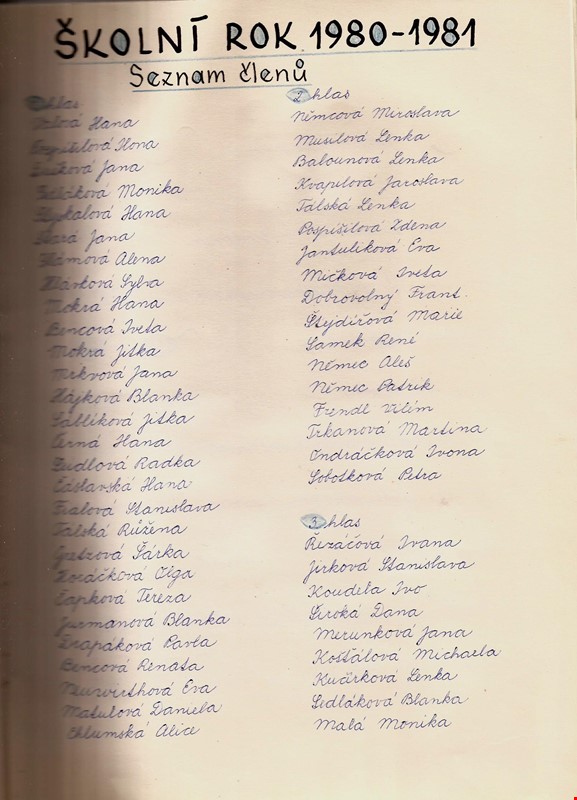 ŠKOLNÍ ROK 1980-1981
Seznam členů
hlas
Hana
Pospíšilová Ilona
Jana
Sedláková Monika
Skokalová Hana
Stará Jana
Hámová Alena
Klárková Sylva
Mokrá Hana
Bencová Iveta
Mokrá Jitka
Mrkvová Jana
Hájková Blanka
Fáblíková Jitka
Černá Hana
Seidlová Radka
Čáslavská Hana
Fialová Stanislava
Talská Růžena
Šárka
Horáčková Olga
Čapková Tereza
Jurmanová Blanka
Drapáková Pavla
Bencová Renata
Eva
Matulová Daniela
Chlumská Alice
2 hlas
Němcová Miroslava
Musilová Lenka
Balounová Lenka
Kvapilová Jaroslava
Talská Lenka
Pospíšilová Zdena
Jantulíková Eva
Mičková Iveta
Dobrovolný Frant.
Štejdířová Marie
Samek René
Němec Aleš
Němec Patrik
Frendl Vilém
Trkanová Martina
Ondráčková Ivona
Sobotková Petra
3 hlas
Řezáčová Ivana
Jirková Stanislava
Koudela Ivo
Široká Dana
Merunková Jana
Košťálová Michaela
Kučírková Lenka
Sedláková Blanka
Malá Monika